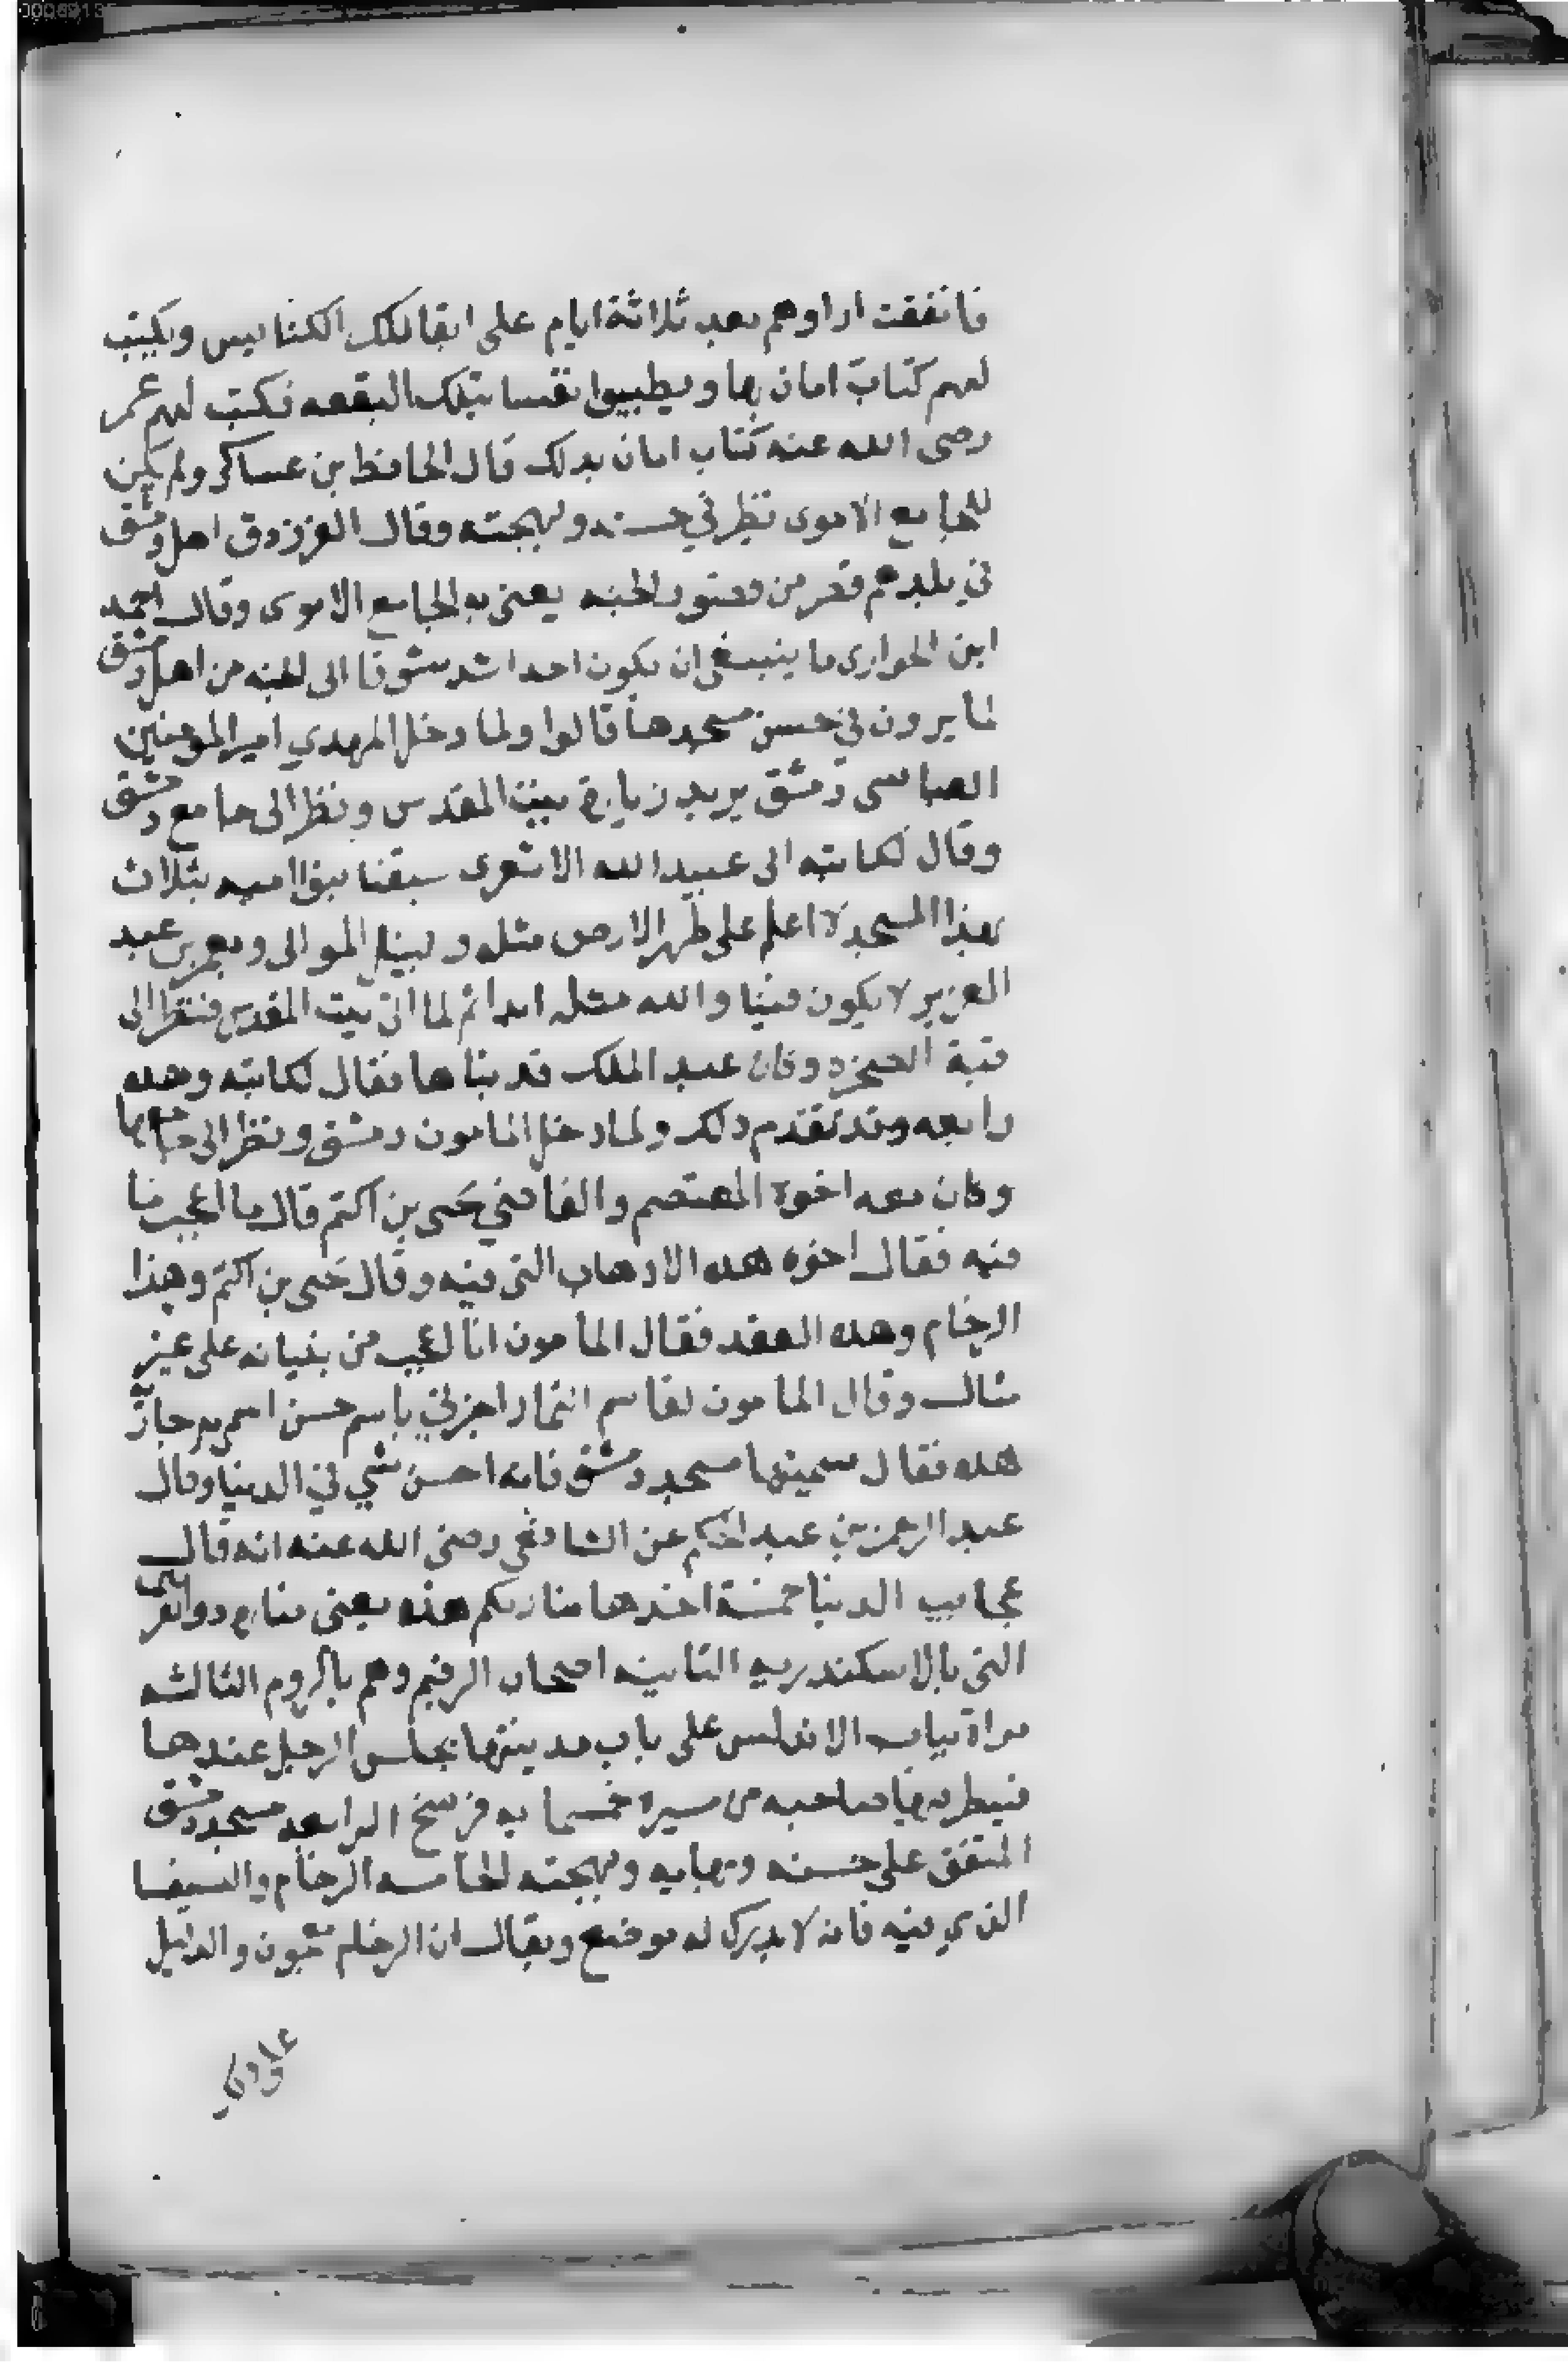 فاتفقت اراوهم بعد ثلاثة ايام على ابقا تلك الكنايس ويكتب
لهم كتاب امان بها ويطيبوا نفسا بتلك البقعه فكتب لهم عمر
رضى الله عنه كتاب امان بدلك قال الحافظ بن عساكر ولم يكن
للجامع الاموى نظير في حسنه وبهجته وقال الفرزدق اهل دمشق
في بلدهم قصر من قصور الجنه يعنى به الجامع الاموى وقال احمد
ابن الحوارى ما ينبغى ان يكون احدا اشد شوقا الى الجنه من اهل دمشق
لما يرون في حسن مسجدها قالوا ولما دخل المهدي امير المومنين
العباسى دمشق يريد زيارة بيت المقدس ونظر الى جامع دمشق
وقال لكاتبه ابى عبيد الله الاشعرى سبقنا بنوا اميه بثلاث
بهذا المسجد لا اعلم على ظهر الارض مثله وبنبل الموالى وبعمر بن عبد
العزيز لا يكون فينا والله مثله ابدا ثم لما اتى بيت المقدس فنظر الى
قبة الصخره وكان عبد الملك قد بناها فقال لكاتبه وهده
رابعه وقد تقدم دلك ولما دخل المامون دمشق ونظر الى جامعها
وكان معه اخوه المعتصم والقاضي يحيى بن اكتم قال ما اعجب ما
فيه فقال اخوه هده الادهاب التى فيه وقال يحيى بن اكتم وهذا
الرخام وهده العقد فقال المأمون انا اعجب من بنيانه على غير
مثال وقال المامون لقاسم التمار اخبرني باسم حسن اسم به جاريتى
هده فقال سميها مسجد دمشق فانه احسن شي في الدنيا وقال
عبد الرحمن بن عبد الحكم عن الشافعى رضى الله عنه انه قال
عجايب الدنيا خمسة احدها منارتكم هذه يعنى منارة دو القرنين
التى بالاسكندريه الثانيه اصحاب الرقيم وهم بالروم الثالثه
مراة بباب الاندلس على باب مدينتها يجلس الرجل عندها
فينظر فيها صاحبه من مسيرة خمسمايه فرسخ الرابعه مسجد دمشق
المتفق على حسنه وبهايه وبهجته الخامسه الرخام والفسيفسا
الذي فيه فانه لا يدرك له موضع ويقال ان الرخام معجون والدليل
على دلك